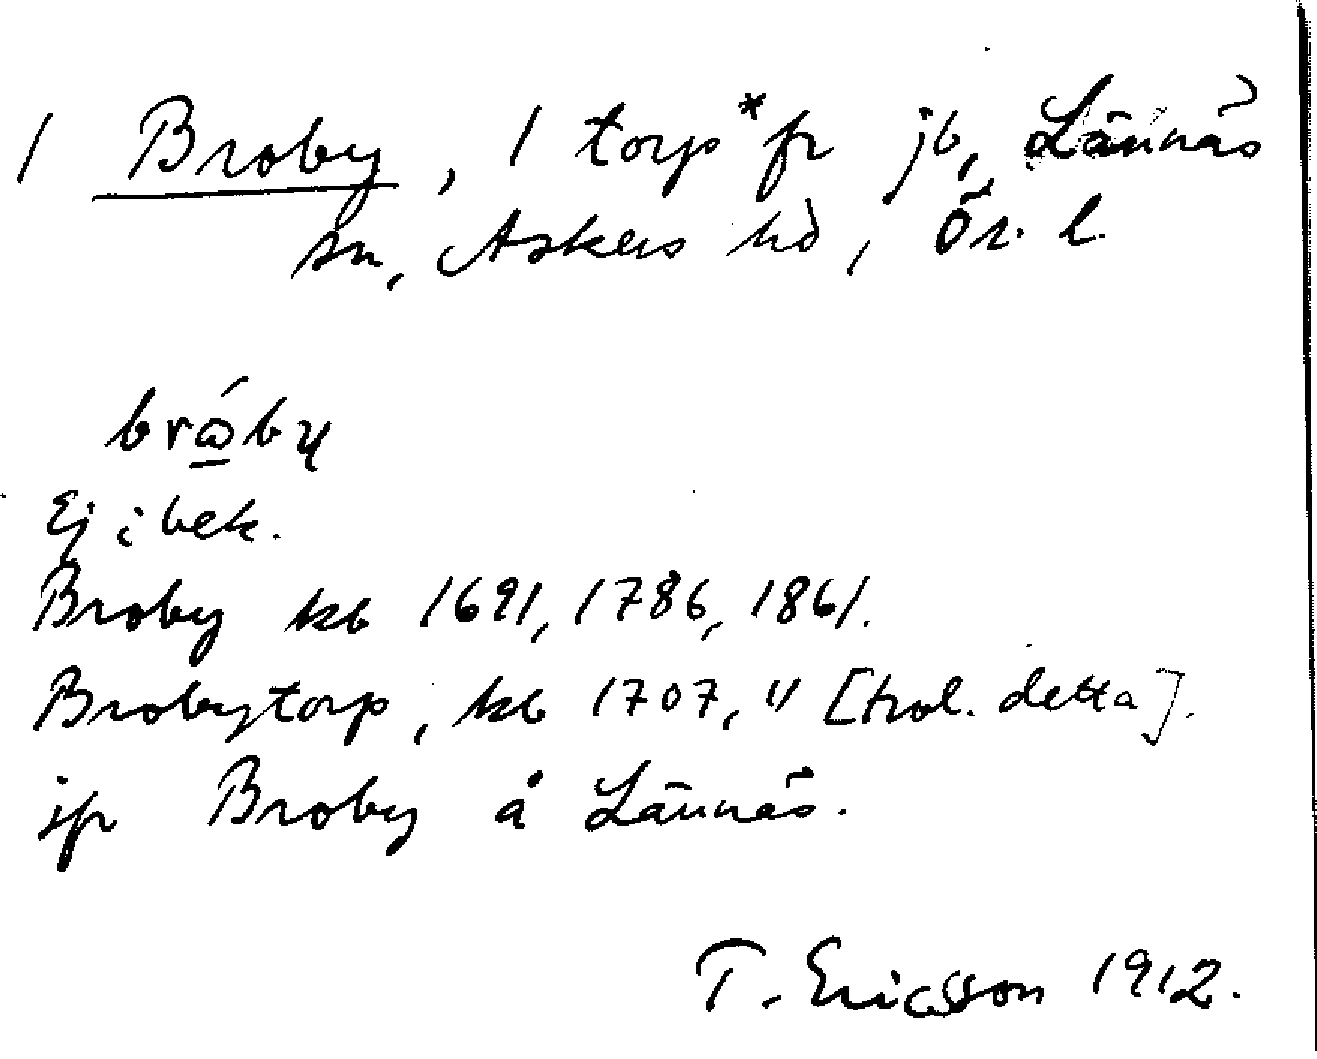 1 Broby, 1 torp* fr jb, Lännäs
sn, Askers hd, Ör. l.
bró̲by
Ej i bek.
Broby kb 1691, 1786, 1861.
Brobytorp, kb 1707, " [trol. detta].
jfr Broby å Lännäs.
T. Ericsson 1912.